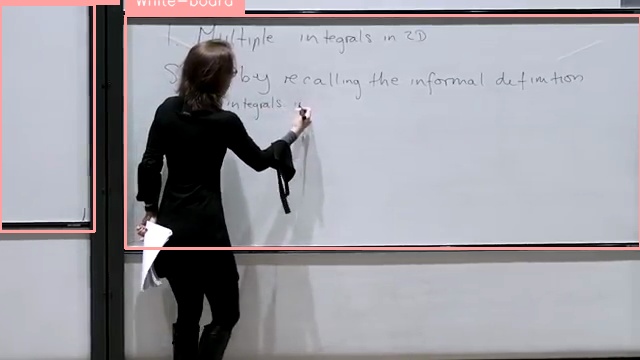 White-board
1. Multiple integrals in 2D
by recalling the informal definition
integrals